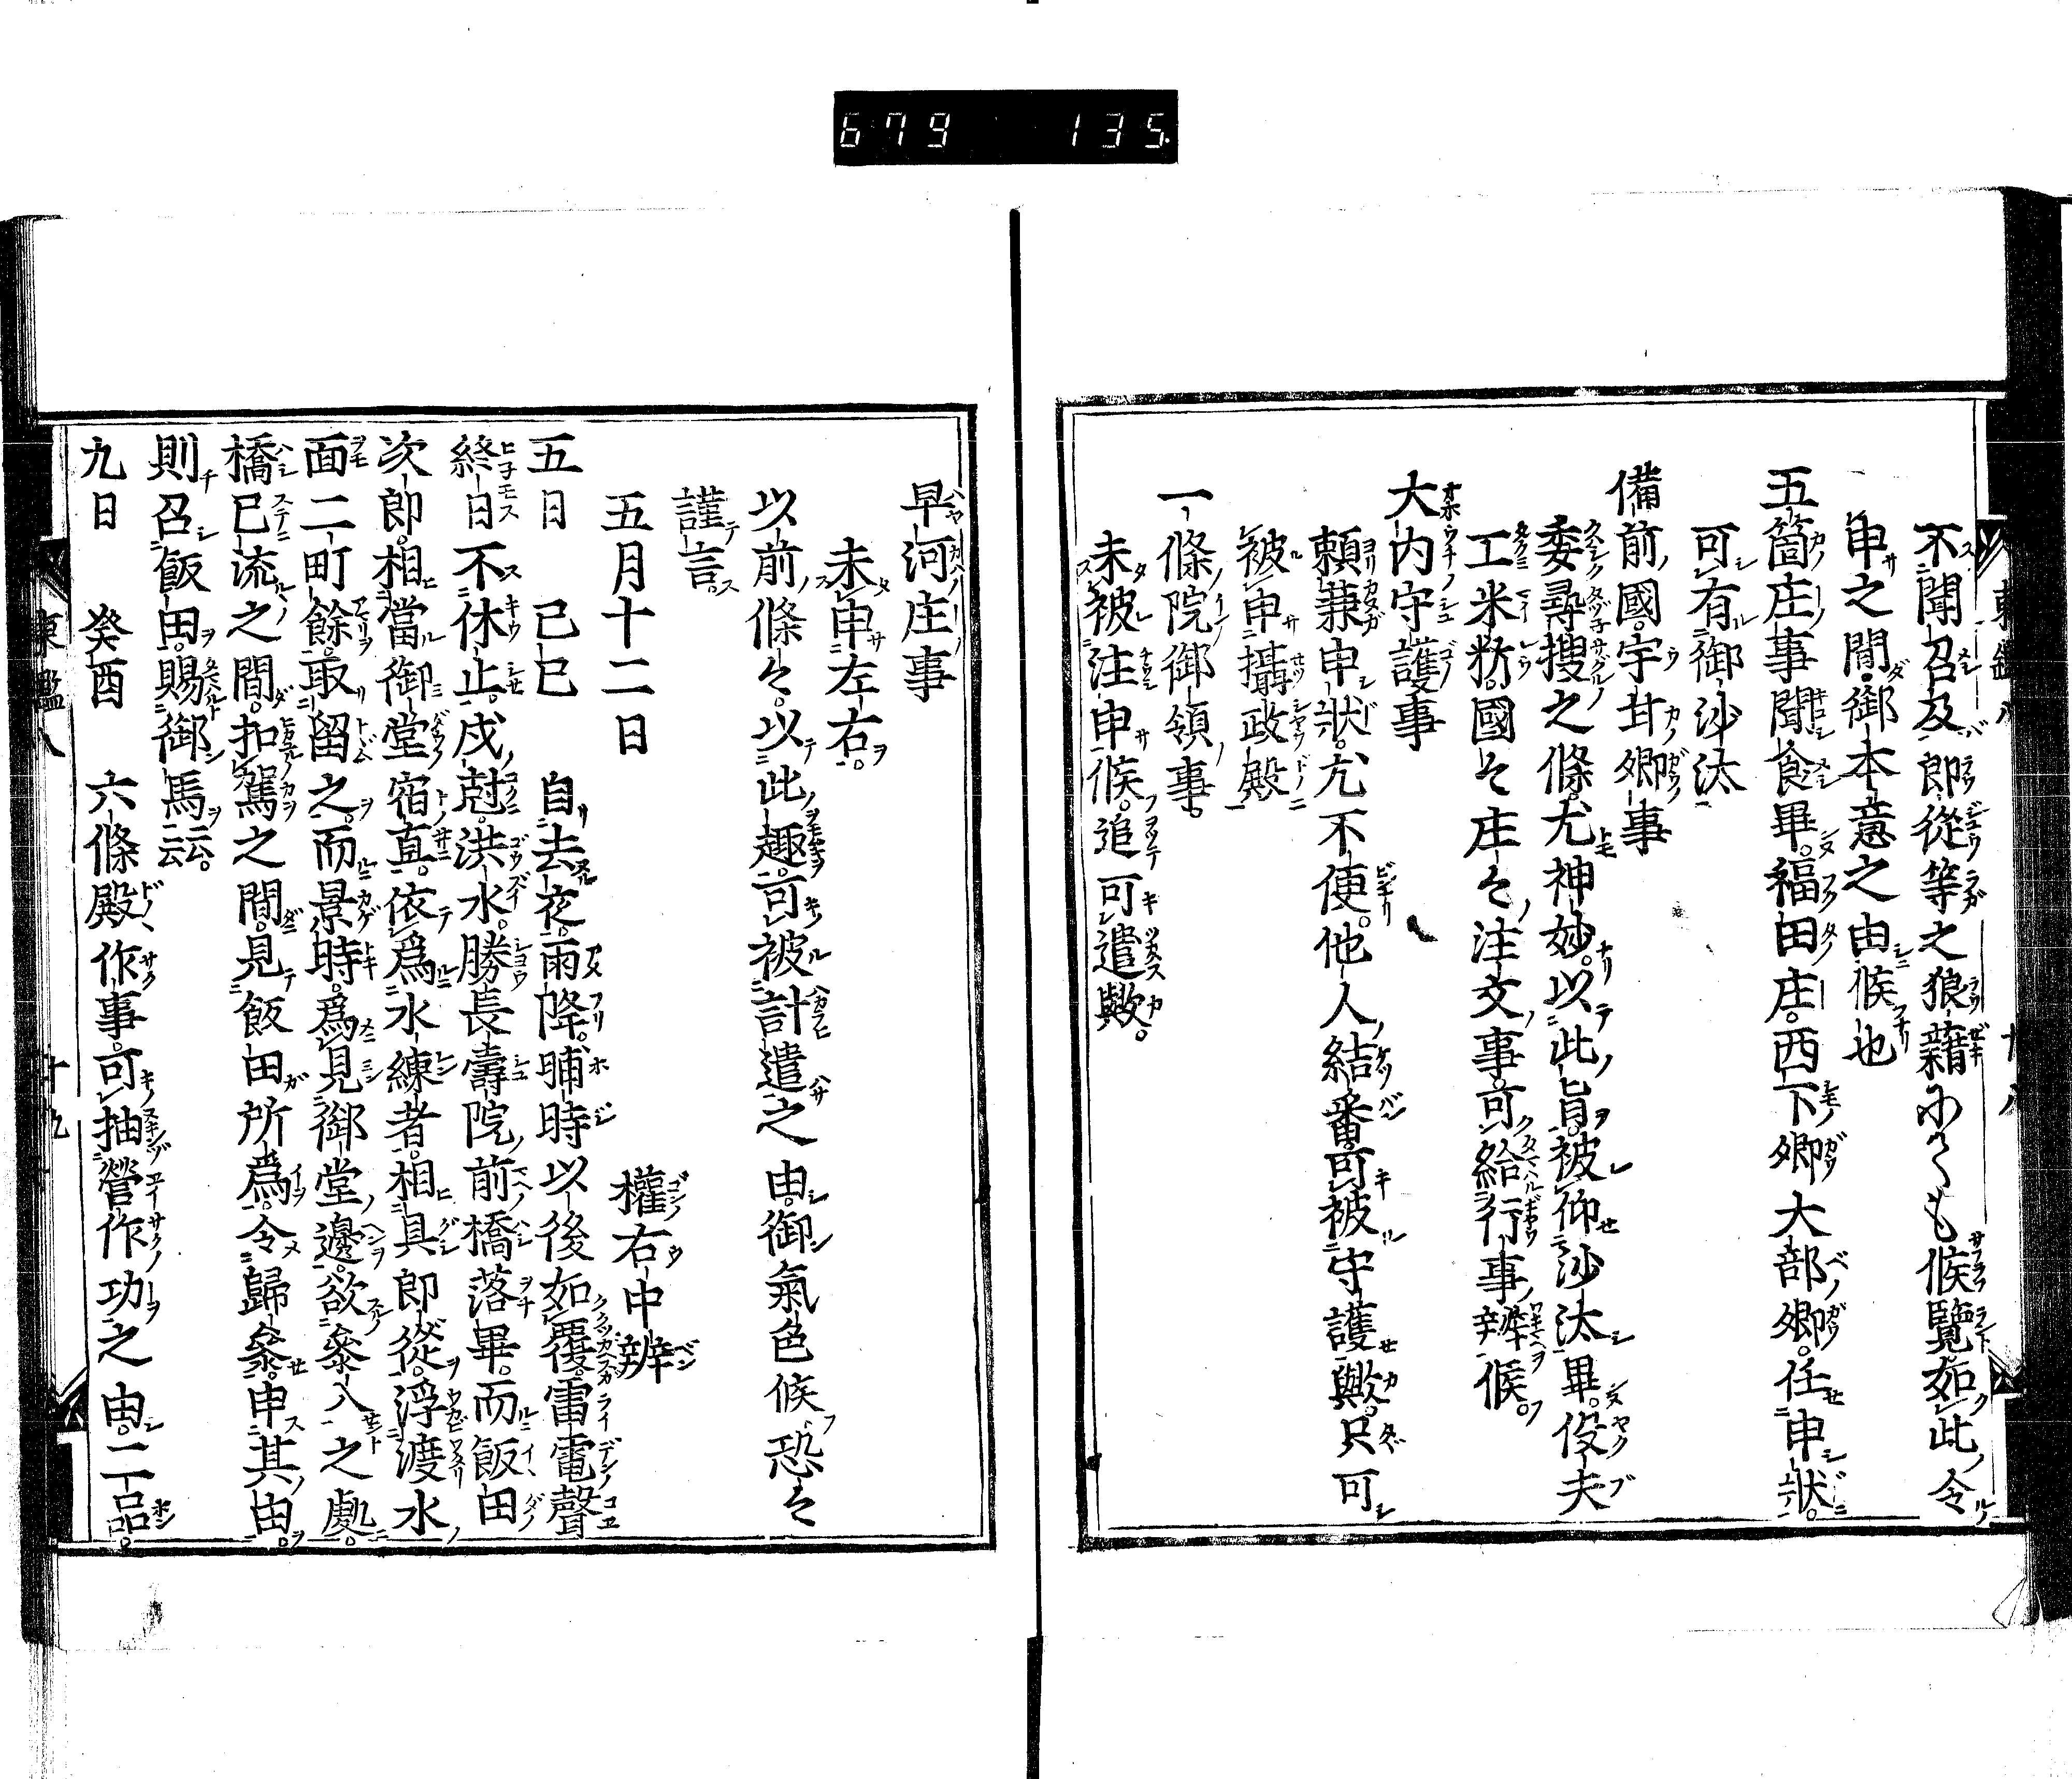 679 135
不聞召及郎從等之狼藉にても候覽如此令
申之間御本意之由候也
五箇庄事聞食畢福田庄西下郷大部郷任申狀
可有御沙汰
備前國宇甘郷事
委尋搜之條尤神妙以此旨被仰沙汰畢役夫
工米粉國々庄々注文事可給行事辨候
大内守護事
頼兼申狀尤不便他人結番可被守護歟只可
被申攝政殿
一條院御領事
未被注申候追可遣歟
早河庄事
未申左右
以前條々以此趣可被計遣之由御氣色候恐々
謹言
五月十二日 權右中辨
五日 己巳 自去夜雨降晡時以後如覆雷電聲
終日不休止戌尅洪水勝長壽院前橋落畢而飯田
次郎相當御堂宿直依爲水練者相具郎從浮渡水
面二町餘取留之而景時爲見御堂邊欲參入之處
橋已流之間扣駕之間見飯田所爲令歸參申其由
則召飯田賜御馬云云
九日 癸酉 六條殿作事可抽營作功之由二品
東鑑八 十九